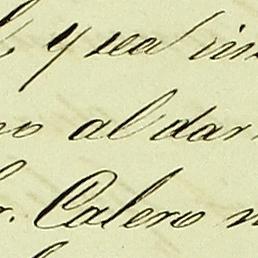 y sea
no al dar
r. Calero